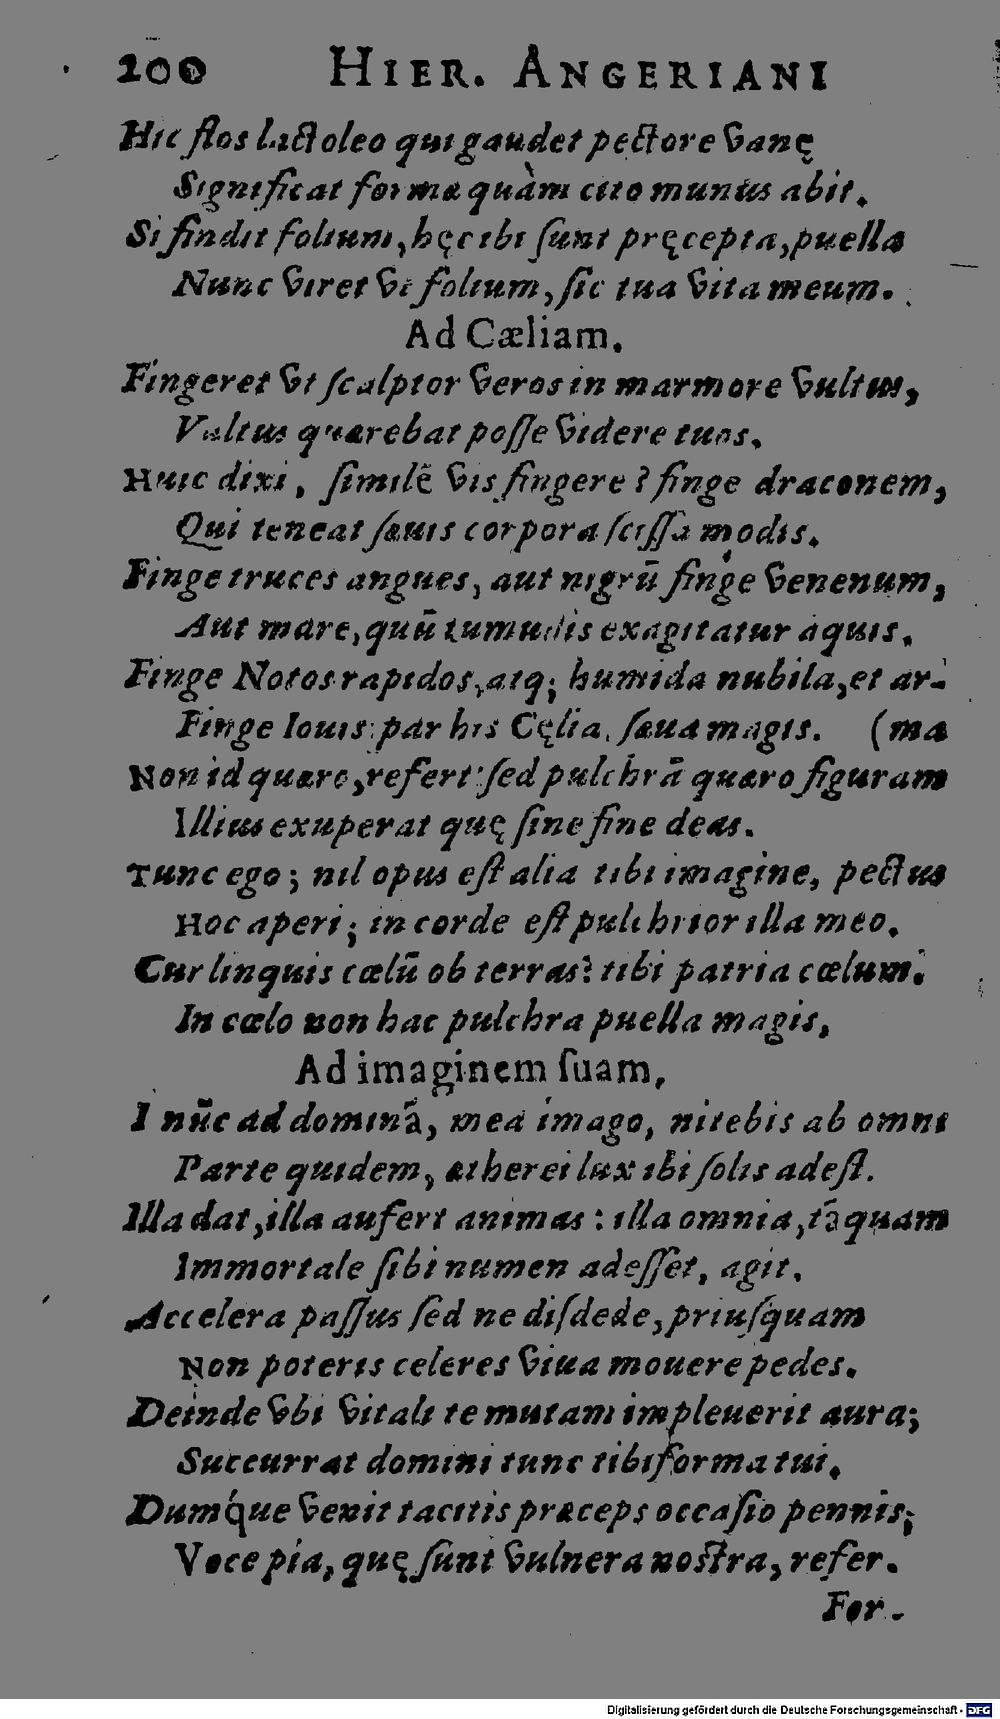 200 HIER. ANGERIANI
Hic flos lacteoleo qui gaudet pectore vanę
Significat formæ quàm cito munus abit.
Si findit folium, hęc tibi sunt pręcepta, puella
Nunc viret vt folium, sic tua vita meum.
Ad Cæliam.
Fingeret vt sculptor veros in marmore vultus,
Vultus quærebat posse videre tuos.
Huic dixi, similē vis fingere? finge draconem,
Qui teneat sæuis corpora scissa modis.
Finge truces angues, aut nigrū finge venenum,
Aut mare, quū tumidis exagitatur aquis.
Finge Notos rapidos, atq; humida nubila, et ar-
Finge Iouis: par his Cęlia, sæua magis. (ma
Non id quæro, refert: sed pulchrā quæro figuram
Illius exuperat quę sine fine deas.
Tunc ego; nil opus est alia tibi imagine, pectus
Hoc aperi; in corde est pulchrior illa meo.
Cur linquis cœlū ob terras? tibi patria cœlum:
In cœlo non hac pulchra puella magis,
Ad imaginem suam,
I nūc ad dominā, mea imago, nitebis ab omni
Parte quidem, ætherei lux ibi solis adest.
Illa dat, illa aufert animas: illa omnia, tāquam
Immortale sibi numen adesset, agit.
Accelera passus sed ne disdede, priusquam
Non poteris celeres viua mouere pedes.
Deinde vbi vitali te mutam impleuerit aura;
Succurrat domini tunc tibi forma tui.
Dumq́ue venit tacitis præceps occasio pennis;
Voce pia, quę sunt vulnera nostra, refer.
For-
Digitalisierung gefördert durch die Deutsche Forschungsgemeinschaft - DFG